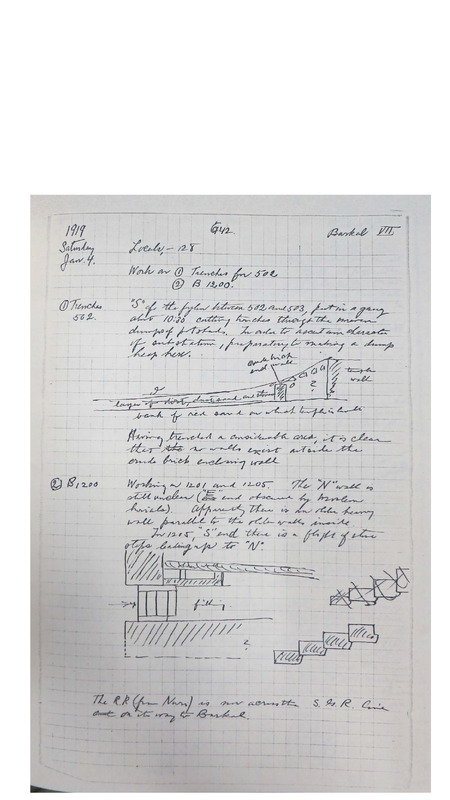 1919 642 Barkal VII
Saturday Locals, - 128
Jan. 4.
Work on ① Trenches for 502
② B 1200.
① Trenches "S" of the pylon between 502 and 503, put in a gang
502. about 10:30 cutting trenches through the
dumps of potsherds, in order to ascertain character
of substratum, preparatory to making a dump
heap here.
crude brick
end wall
temple
wall
?
?
layer of dirt, dust, sand, and stone
bank of red sand on which temple is built
Having trenched a considerable area, it is clear
that no walls exist outside the
crude brick enclosing wall
② B 1200 Working on 1201 and 1205. The "N" wall is
still unclear ("E" end obscured by broken
bricks). Apparently there is an older heavy
wall parallel to the older walls inside
In 1205, "S" end there is a flight of stone
steps leading up to "N"
filling
?
The R.R. (from Nuri) is now across the S. G. R. line
on its way to Barkal.